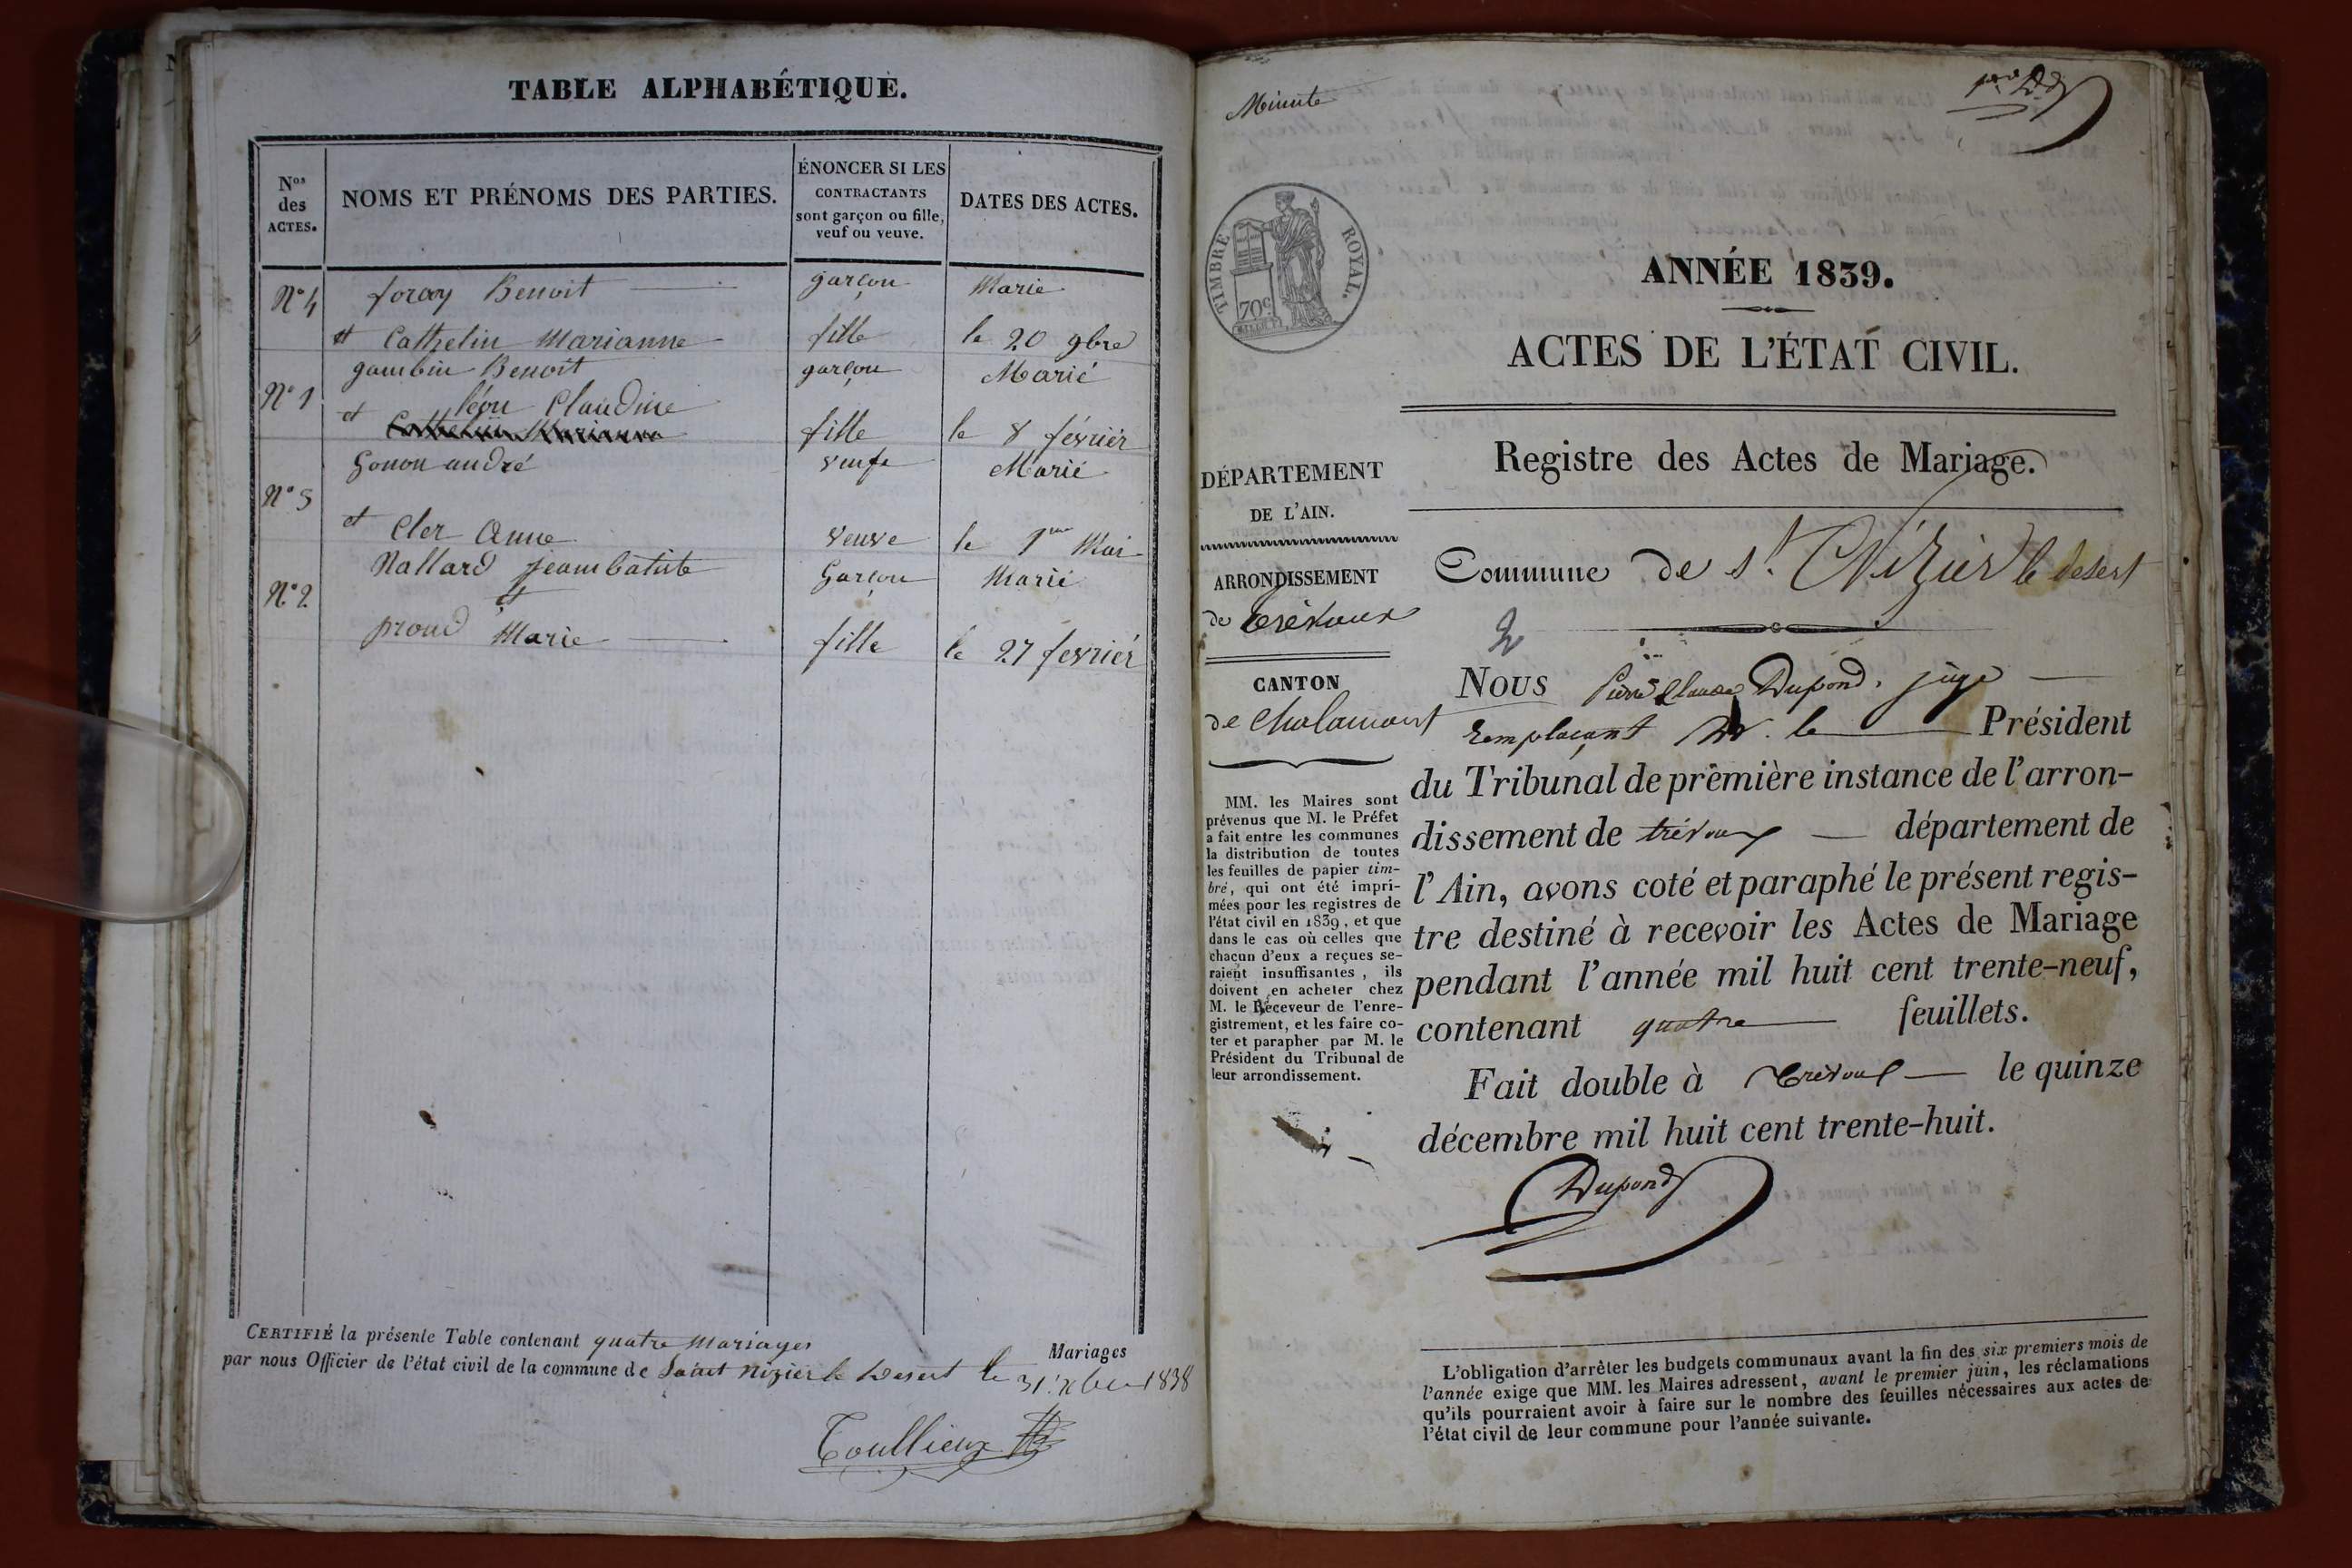 TABLE ALPHABÉTIQUE.
Nos des ACTES.
NOMS ET PRÉNOMS DES PARTIES.
ÉNONCER SI LES
CONTRACTANTS
sont garçon ou fille,
veuf ou veuve.
DATES DES ACTES.
N° 4 foray Benoit garçon Marie
et Cathelin Marianne fille le 20 9bre
gambin Benoit garçon Marié
N° 1 léon Claudine
et Cathelin Marianne fille le 8 février
Gonon andré veufe Marié
N° 3
et Cler Anne veuve le 1er Mai
Nallard jeambatiste Garçon Marié
N° 2 et
proud Marie fille le 27 fevriér
CERTIFIÉ la présente Table contenant quatre Mariages Mariages
par nous Officier de l'état civil de la commune de Saint Nizier le Desert le 31 Xbre 1838
Toullieux
Minute
TIMBRE ROYAL.
70c
ANNÉE 1839.
ACTES DE L'ÉTAT CIVIL.
Registre des Actes de Mariage.
Commune de St. Nizier le desert
2
DÉPARTEMENT
DE L'AIN.
ARRONDISSEMENT
de Trévoux
CANTON
de Chalamont
MM. les Maires sont
prévenus que M. le Préfet
a fait entre les communes
la distribution de toutes
les feuilles de papier tim-
bré, qui ont été impri-
mées pour les registres de
l'état civil en 1839, et que
dans le cas où celles que
chacun d'eux a reçues se-
raient insuffisantes, ils
doivent en acheter chez
M. le Receveur de l'enre-
gistrement, et les faire co-
ter et parapher par M. le
Président du Tribunal de
leur arrondissement.
NOUS Pierre Claude Dupond, juge
remplaçant Mr. le Président
du Tribunal de première instance de l'arron-
dissement de trévoux département de
l'Ain, avons coté et paraphé le présent regis-
tre destiné à recevoir les Actes de Mariage
pendant l'année mil huit cent trente-neuf,
contenant quatre feuillets.
Fait double à Trévoux le quinze
décembre mil huit cent trente-huit.
Dupond
L'obligation d'arrêter les budgets communaux avant la fin des six premiers mois de
l'année exige que MM. les Maires adressent, avant le premier juin, les réclamations
qu'ils pourraient avoir à faire sur le nombre des feuilles nécessaires aux actes de
l'état civil de leur commune pour l'année suivante.